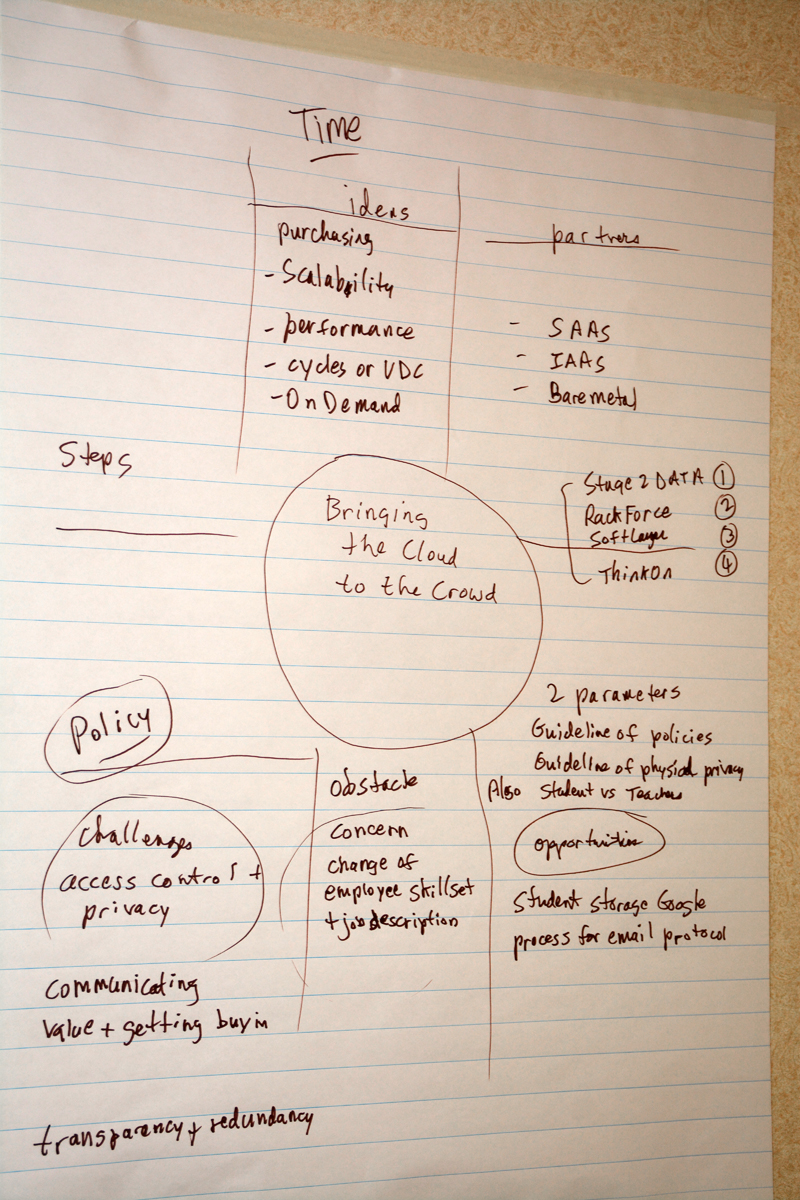 Time
ideas
purchasing
- Scalability
- performance
- cycles or VDC
- On Demand
partners
- SAAS
- IAAS
- Baremetal
Steps
Bringing
the Cloud
to the Crowd
Stage 2 DATA ①
RackForce ②
SoftLayer ③
ThinkOn ④
Policy
challenges
access control +
privacy
communicating
value + getting buy in
transparency + redundancy
obstacle
concern
change of
employee skillset
+ job description
2 parameters
Guideline of policies
Guideline of physical privacy
Also Student vs Teachers
opportunities
Student Storage Google
process for email protocol